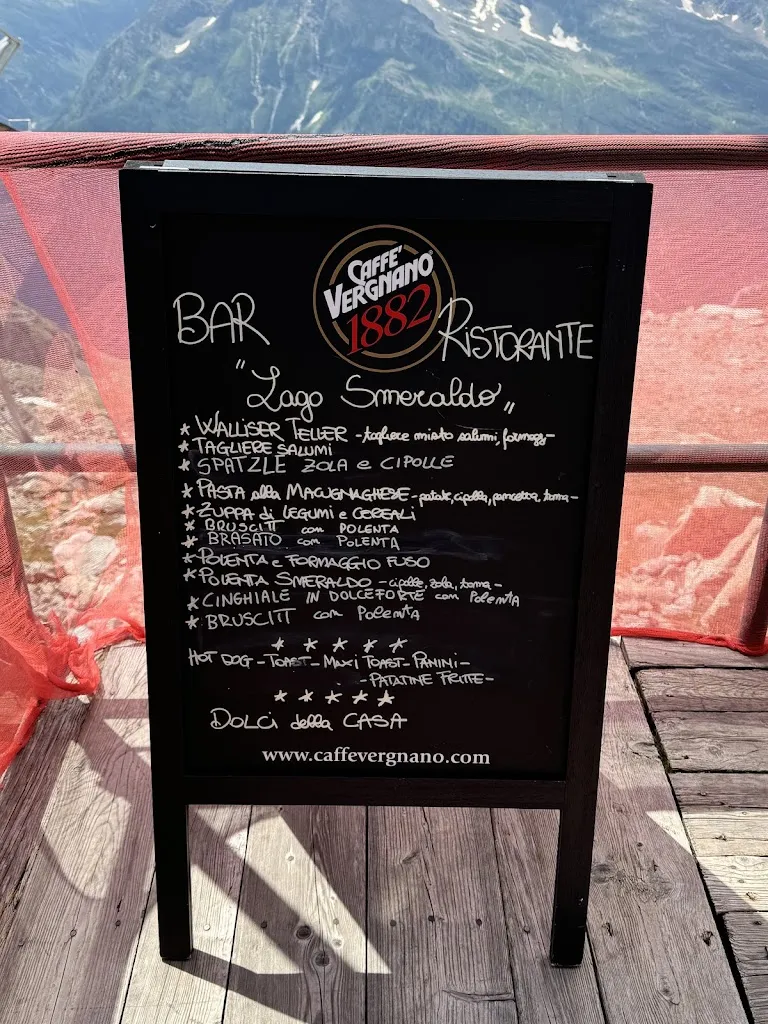 CAFFÈ
VERGNANO
1882
BAR RISTORANTE
"Lago Smeraldo"
* WALLISER TELLER -tagliere misto salumi, formaggi-
* TAGLIERE SALUMI
* SPATZLE ZOLA e CIPOLLE
* PASTA alla MACUGNAGHESE -patate, cipolla, pancetta, toma-
* ZUPPA di LEGUMI e CEREALI
* BRUSCITT con POLENTA
* BRASATO con POLENTA
* POLENTA e FORMAGGIO FUSO
* POLENTA SMERALDO -cipolle, zola, toma-
* CINGHIALE IN DOLCEFORTE con Polenta
* BRUSCITT con Polenta
* * * * *
HOT DOG - TOAST - MAXI TOAST - PANINI -
- PATATINE FRITTE -
* * * * *
DOLCI della CASA
www.caffevergnano.com